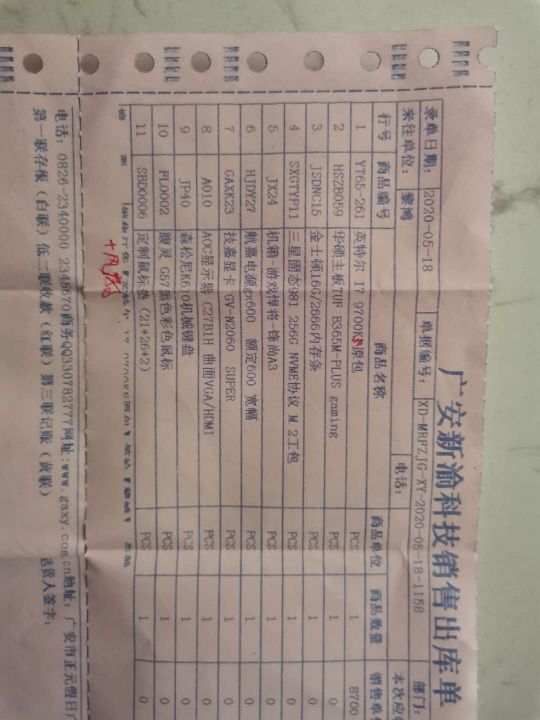 广安新渝科技销售出库单
录单日期: 2020-05-18 单据编号: XD-MRPZJG-XY-2020-08-18-1158 部门:
来往单位: 黎鸿 电话: 本次应
行号 商品编号 商品名称 商品单位 商品数量 销售单
1 YT65-261 英特尔 I7 9700K 原包 PCS 1 8700
2 HSZB059 华硕主板TUF B365M-PLUS gaming PCS 1 0
3 JSDNC15 金士顿16G/2666内存条 PCS 1 0
4 SXGTYP11 三星固态981 256G NVME协议 M.2工包 PCS 1 0
5 JX24 机箱-游戏悍将-锋尚A3 PCS 1 0
6 HJDY27 航嘉电源gx600 额定600 宽幅 PCS 1 0
7 GAXK23 技嘉显卡 GV-N2060 SUPER PCS 1 0
8 A010 AOC显示器 (C27B1H 曲面VGA/HDMI PCS 1 0
9 JP40 森松尼K610机械键盘 PCS 1 0
10 FL0002 腹灵 G57 彩色鼠标 PCS 1 0
11 SBD0006 定制鼠标垫 (21*26*2) PCS 1 0
十风扇
电话: 0826-2340000 2345670商务QQ330782777网址:www.gaxy.com.cn地址: 广安市正元假日
第一联存根 (白联) 低二联收款 (红联) 第三联记账 (黄联) 送货人签字: